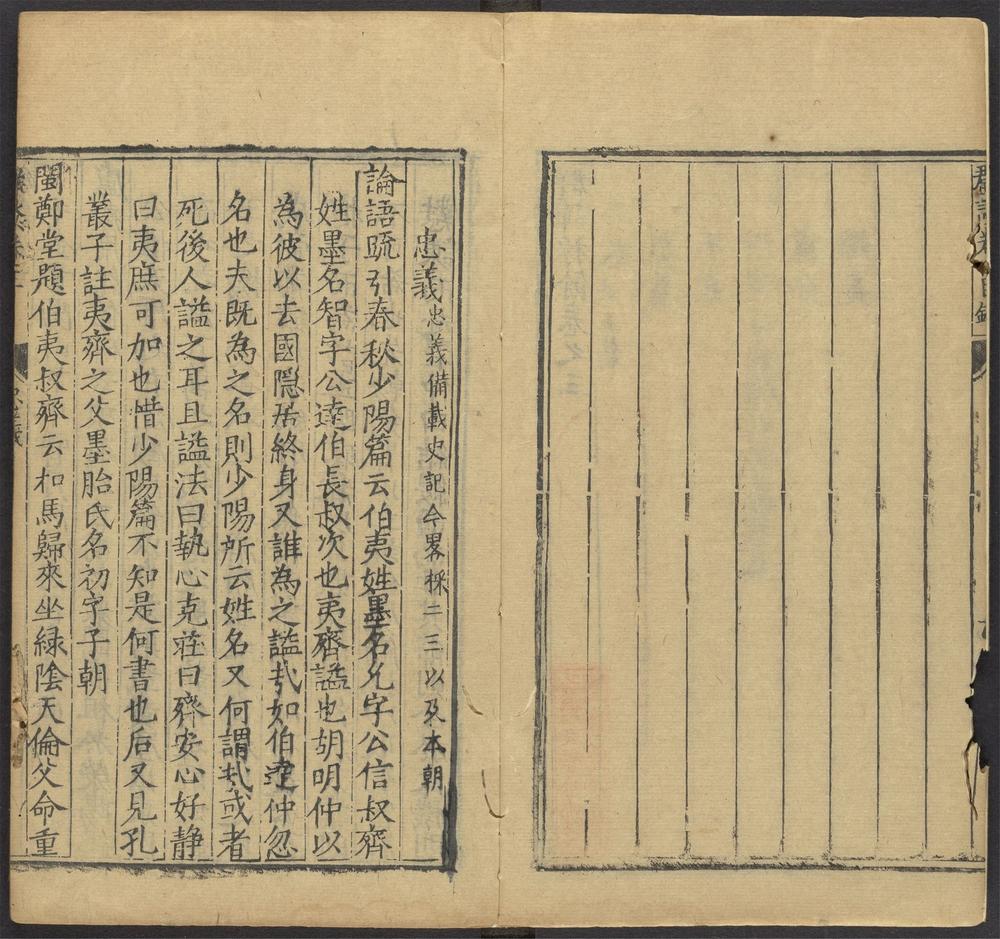 忠義忠義備載史記今畧採二三以及本朝
論語䟽引春秋少陽篇云伯夷姓墨名允字公信叔齊
姓墨名智字公達伯長叔次也夷齊謚也胡明仲以
為彼以去國隱居終身又誰為之謚㢤如伯達仲忽
名也夫既為之名則少陽所云姓名又何謂㢤或者
死後人謚之耳且謚法曰執心克莊曰齊安心好静
曰夷庶可加也惜少陽篇不知是何書也后又見孔
叢子註夷齊之父墨胎氏名初字子朝
閩鄭堂題伯夷叔齊云扣馬歸來坐緑陰天倫父命重